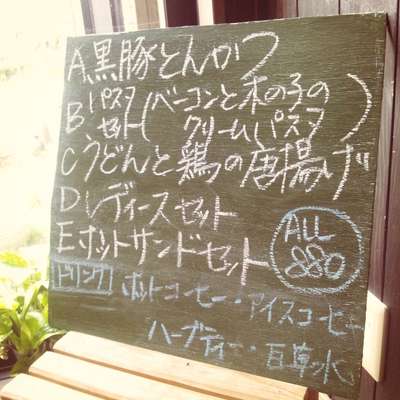 A 黒豚とんかつ
B パスタセット(ベーコンと木の子のクリームパスタ)
C うどんと鶏の唐揚げ
D レディースセット
E ホットサンドセット
ALL 880
ドリンク ホットコーヒー・アイスコーヒー
ハーブティー・百草水